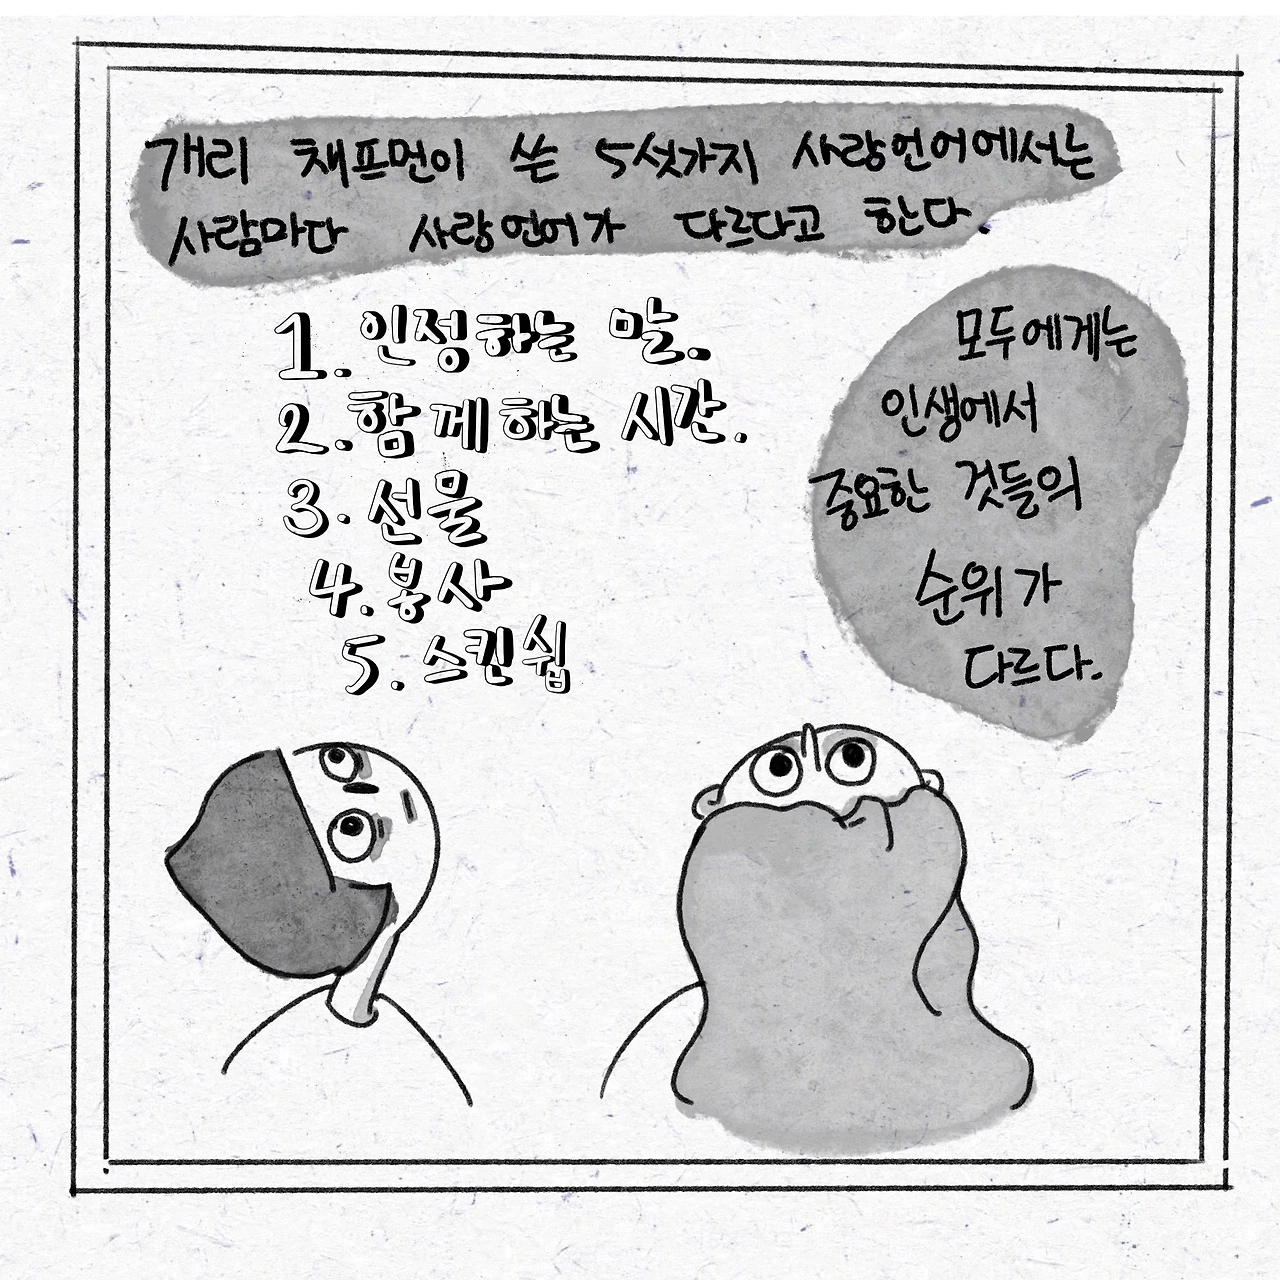 개리 채프먼이 쓴 5섯가지 사랑언어에서는
사람마다 사랑언어가 다르다고 한다.
1. 인정하는 말.
2. 함께하는 시간.
3. 선물
4. 봉사
5. 스킨쉽
모두에게는
인생에서
중요한 것들의
순위가
다르다.